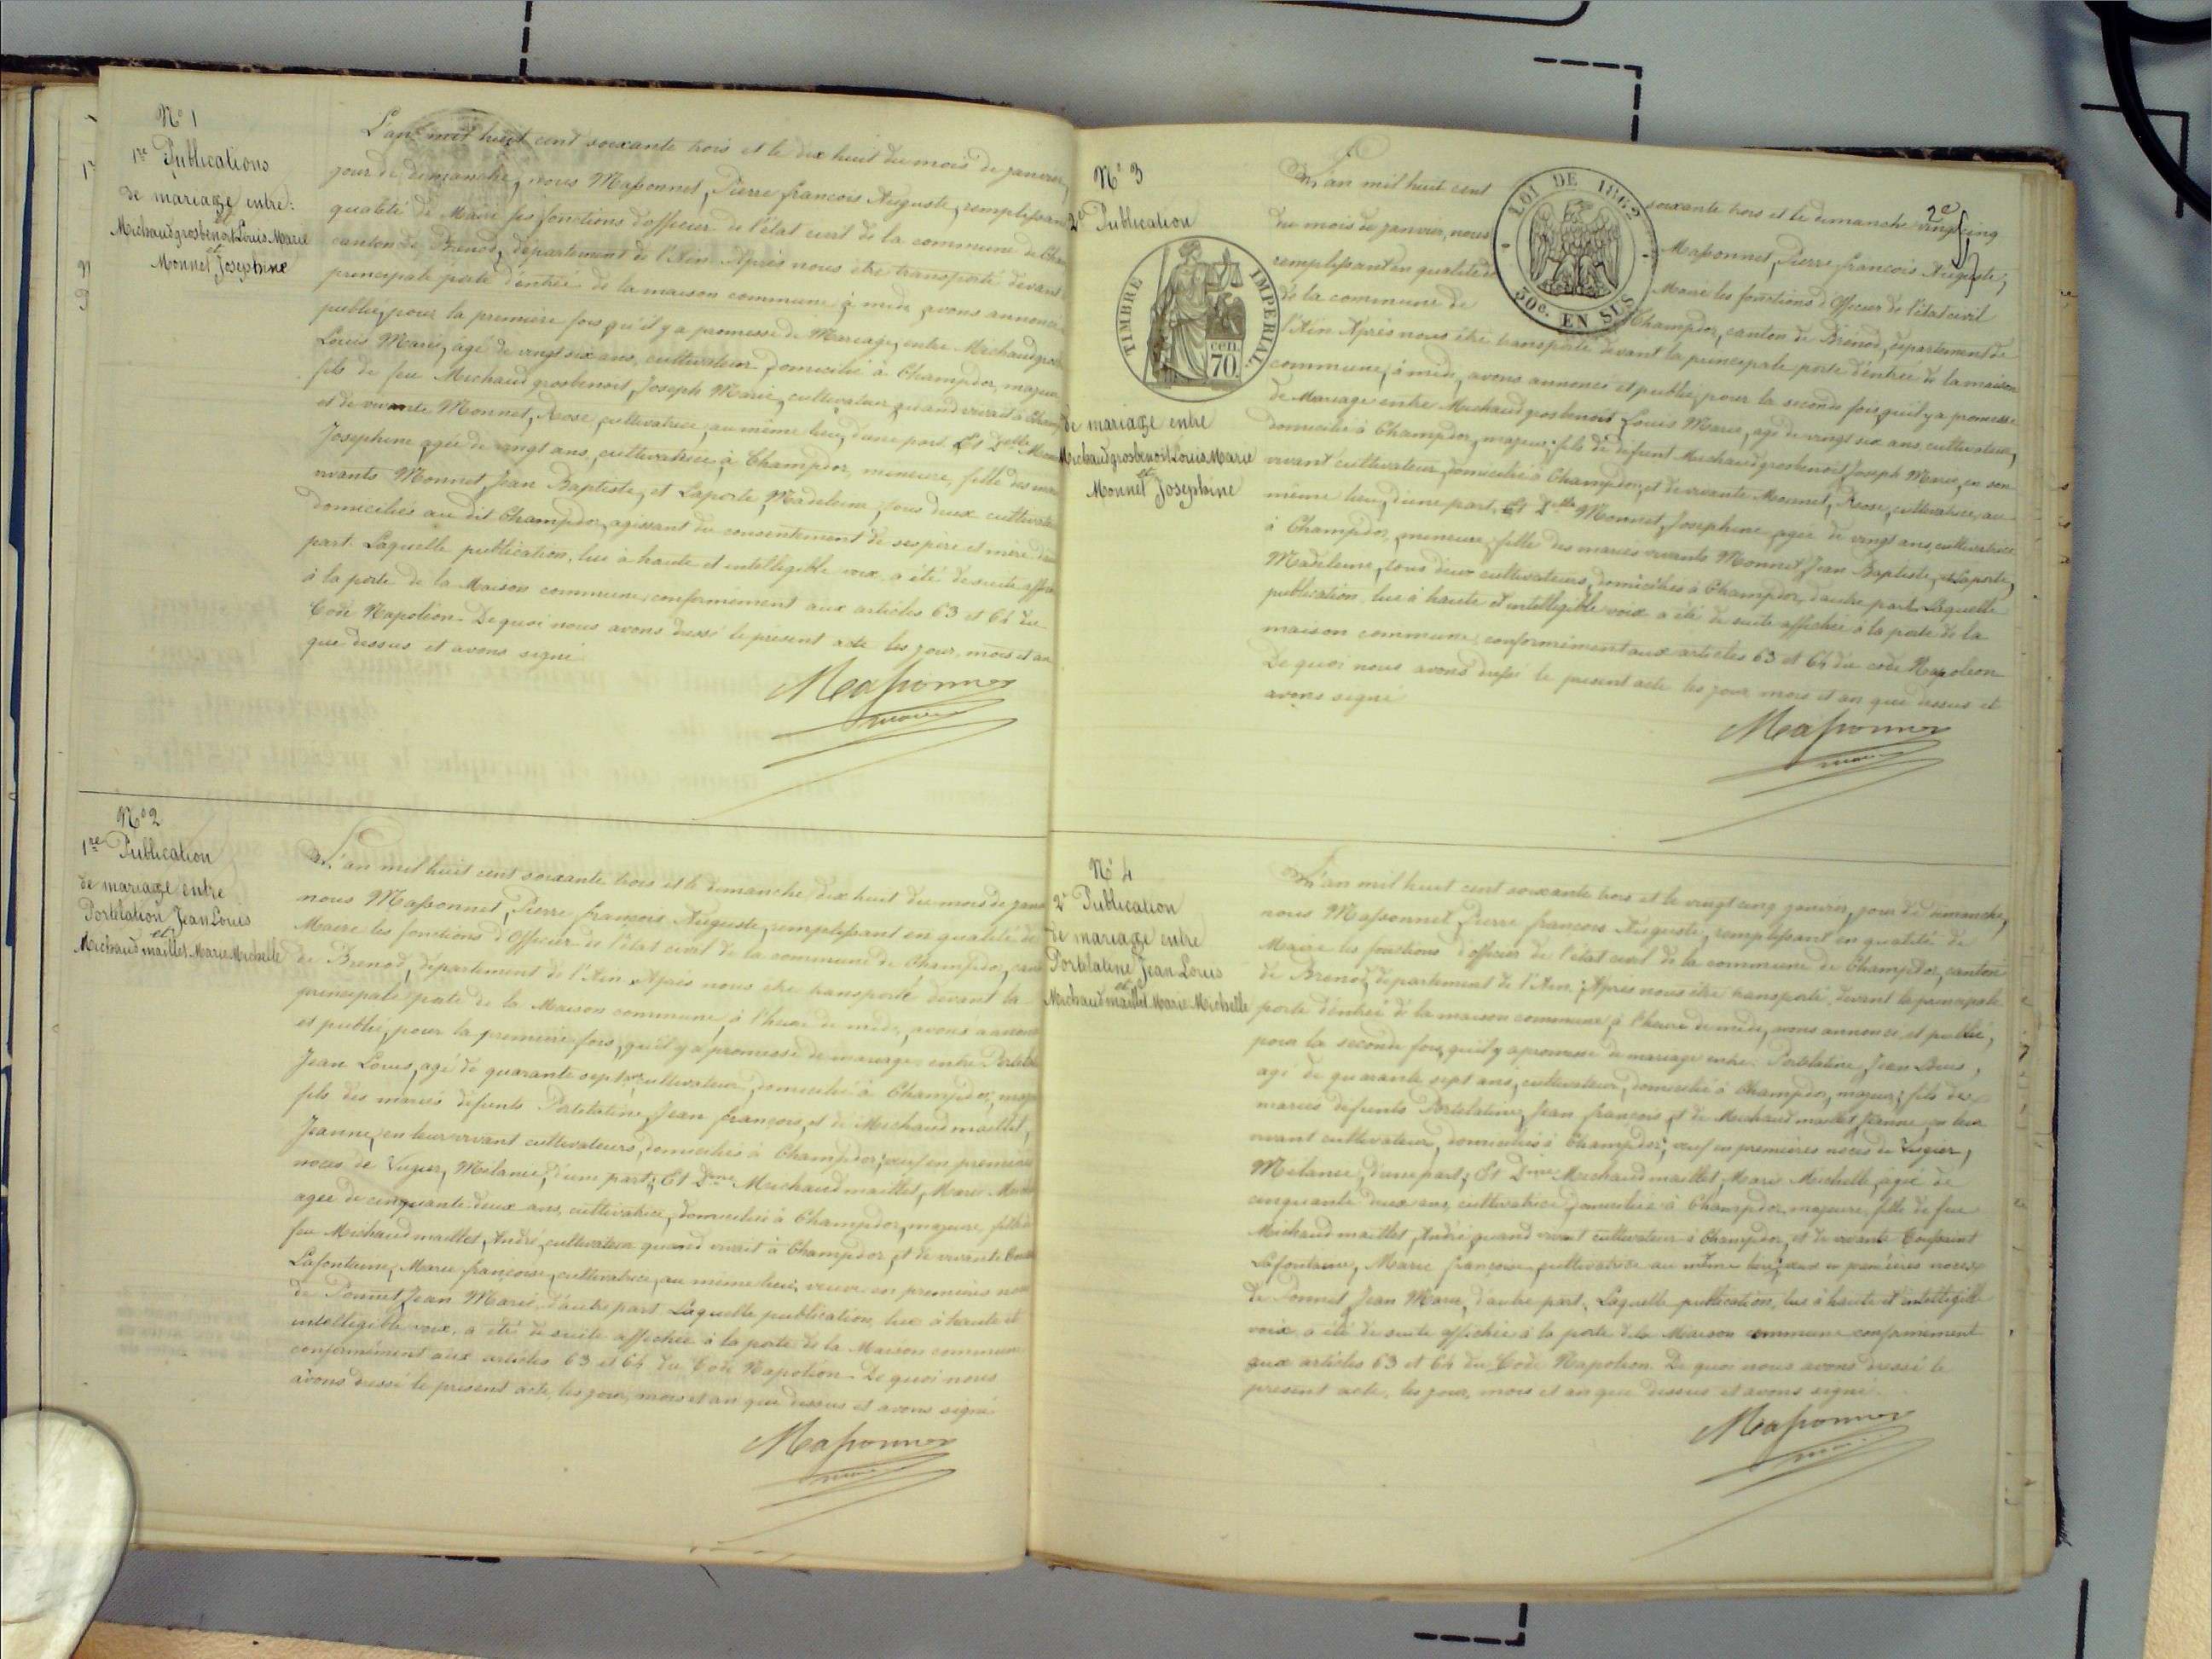 N° 1
1re Publications
de mariage entre:
Michaudgrosbenoit Louis Marie
et
Monnet Josephine
L'an mil huit cent soixante trois et le dix huit du mois de janvier,
jour de dimanche, nous Massonnet, Pierre françois Auguste, remplissant
qualité de Maire les fonctions d'officier de l'état civil de la commune de Cham
canton de Brenod, département de l'Ain. Après nous être transporté devant
principale porte d'entrée de la maison commune à midi, avons annoncé
publié, pour la première fois qu'il y a promesse de Mariage, entre Michaudgros
Louis Marie, âgé de vingt six ans, cultivateur, domicilié à Champdor, majeur
fils de feu Michaud grosbenoit, Joseph Marie, cultivateur quand vivait à Champ
et de vivante Monnet, Rose, cultivatrice, au même lieu, d'une part. Et Delle Monn
Josephine, agée de vingt ans, cultivatrice, à Champdor, mineure, fille des mar
vivants Monnet, Jean Baptiste, et Laporte, Madeleine, tous deux cultivate
domiciliés au dit Champdor, agissant du consentement de ses père et mère d'au
part. Laquelle publication, lue à haute et intelligible voix, a été de suite affich
à la porte de la Maison commune, conformément aux articles 63 et 64 du
Code Napoléon. De quoi nous avons dressé le présent acte les jour, mois et an
que dessus et avons signé
Massonnet
maire
N° 2
1re Publication
de mariage entre
Portelation Jean Louis
et
Michaud maillet Marie Michelle
L'an mil huit cent soixante trois et le dimanche, dix huit du mois de janv
nous Massonnet, Pierre françois Auguste, remplissant en qualité de
Maire les fonctions d'Officier de l'état civil de la commune de Champdor, cant
de Brenod, département de l'Ain. Après nous être transporté devant la
principale porte de la Maison commune, à l'heure de midi, avons annonc
et publié, pour la première fois, qu'il y a promesse de mariage, entre Portelat
Jean Louis, agé de quarante sept ans, cultivateur, domicilié à Champdor, maje
fils des mariés défunts Portelatine, Jean françois, et de Michaud maillet,
Jeanne, en leur vivant cultivateurs, domiciliés à Champdor; veuf en premières
noces de Vugier, Mélanie, d'une part; Et Dme Michaud maillet, Marie Mich
agée de cinquante deux ans, cultivatrice, domiciliée à Champdor, majeure, fille de
feu Michaud maillet, André, cultivateur quand vivait à Champdor, et de vivante
Lafontaine, Marie françoise, cultivatrice, au même lieu, veuve en premières noc
de Ponnet, Jean Marie, d'autre part. Laquelle publication, lue à haute et
intelligible voix, a été de suite affichée à la porte de la Maison commune
conformément aux articles 63 et 64 du Code Napoléon. De quoi nous
avons dressé le présent acte, les jour, mois et an que dessus et avons signé
Massonnet
maire
N° 3
2e Publication
TIMBRE IMPERIAL
cen.
70
de mariage entre
Michaudgrosbenoit Louis Marie
et
Monnet Josephine
LOI DE 1862
50c. EN SUS
2e
L'an mil huit cent soixante trois et le dimanche vingt cinq
du mois de janvier, nous Massonnet, Pierre françois Auguste,
remplissant en qualité de Maire les fonctions d'Officier de l'état civil
de la commune de Champdor, canton de Brénod, département de
l'Ain. Après nous être transporté devant la principale porte d'entrée de la maison
commune, à midi, avons annoncé et publié, pour la seconde fois, qu'il y a promesse
de Mariage entre Michaud grosbenoit Louis Marie, agé de vingt six ans, cultivateur,
domicilié à Champdor, majeur, fils de défunt Michaud grosbenoit, Joseph Marie, en son
vivant cultivateur, domicilié à Champdor, et de vivante Monnet, Rose, cultivatrice, au
même lieu, d'une part. Et Delle Monnet, Josephine agée de vingt ans, cultivatrice
à Champdor, mineure, fille des mariés vivants Monnet, Jean Baptiste, et Laporte,
Madeleine, tous deux cultivateurs, domiciliés à Champdor, d'autre part. Laquelle
publication, lue à haute et intelligible voix a été de suite affichée à la porte de la
maison commune, conformément aux articles 63 et 64 du code Napoléon
De quoi nous avons dressé le présent acte les jour mois et an que dessus et
avons signé
Massonnet
maire
N° 4
2e Publication
de mariage entre
Portelatine Jean Louis
et
Michaud maillet Marie Michelle
L'an mil huit cent soixante trois et le vingt cinq janvier, jour de dimanche,
nous Massonnet, Pierre françois Auguste, remplissant en qualité de
Maire les fonctions d'officier de l'état civil de la commune de Champdor, canton
de Brenod, département de l'Ain. Après nous être transporté, devant la principale
porte d'entrée de la maison commune, à l'heure de midi, avons annoncé, et publié,
pour la seconde fois, qu'il y a promesse de mariage entre Portelatine, Jean Louis,
agé de quarante sept ans, cultivateur, domicilié à Champdor, majeur; fils des
mariés défunts Portelatine, Jean françois, et de Michaud maillet Jeanne en leur
vivant cultivateurs, domiciliés à Champdor; veuf en premières noces de Vugier,
Mélanie, d'une part; Et Dme Michaud maillet Marie Michelle, agée de
cinquante deux ans, cultivatrice, domiciliée à Champdor, majeure, fille de feu
Michaud maillet, André, quand vivait cultivateur à Champdor, et de vivante Toussaint
Lafontaine, Marie françoise, cultivatrice au même lieu, veuve en premières noces
de Ponnet, Jean Marie, d'autre part. Laquelle publication, lue à haute et intelligible
voix, a été de suite affichée à la porte de la Maison commune conformément
aux articles 63 et 64 du Code Napoléon. De quoi nous avons dressé le
présent acte, les jour, mois et an que dessus et avons signé.
Massonnet
maire